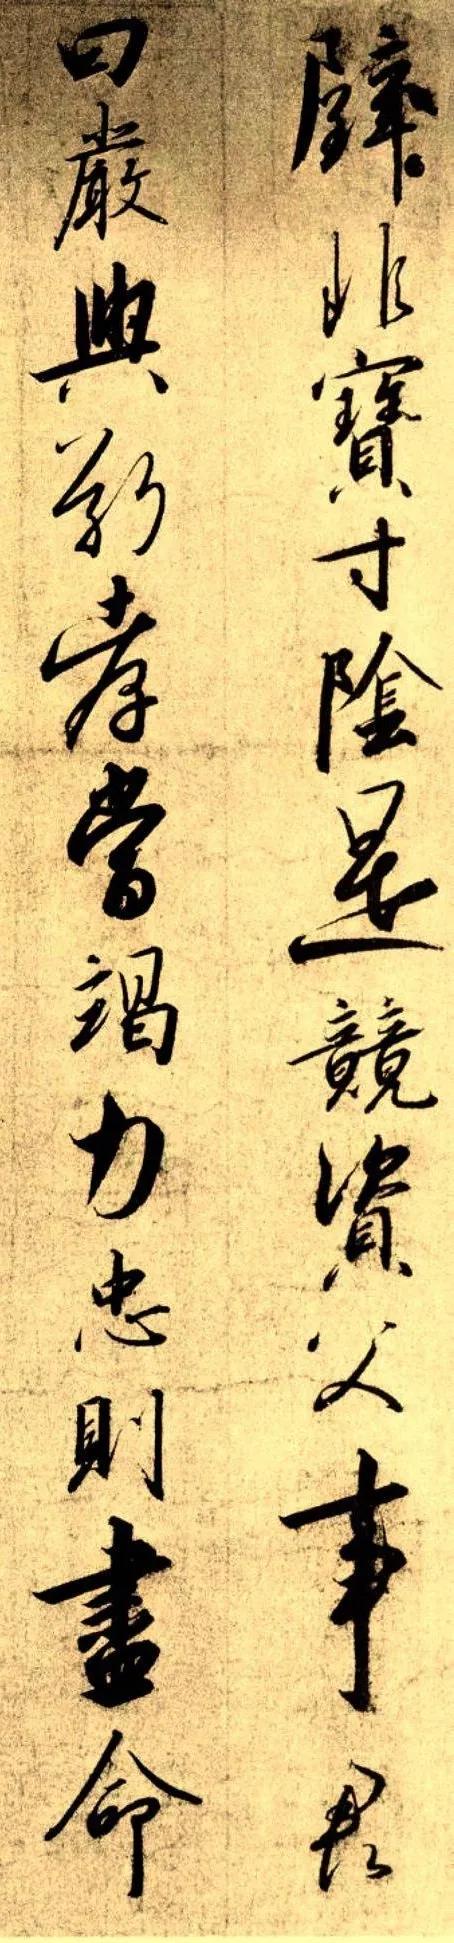 璧非寶寸陰是競資父事君
曰嚴與敬孝當竭力忠則盡命